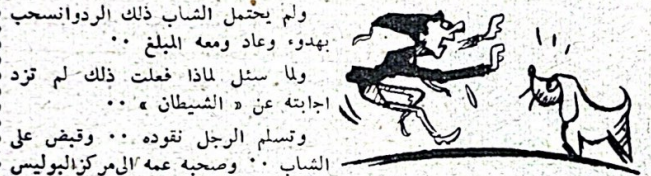 ولم يحتمل الشاب ذلك الردوانسحب
بهدوء وعاد ومعه المبلغ ··
ولما سئل لماذا فعلت ذلك لم تزد
اجابته عن « الشيطان » ··
وتسلم الرجل نقوده ·· وقبض على
الشاب ·· وصحبه عمه الى مركز البوليس